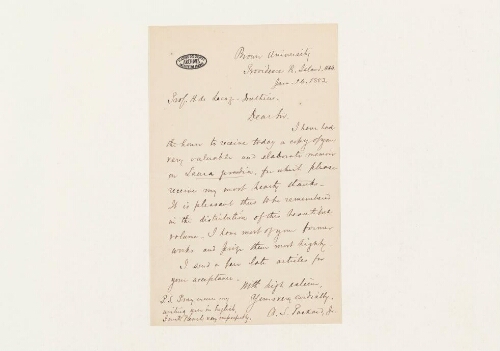 Brown University
Providence R. Island, USA
Jan. 1882
Prof. H de Lacaze-Duthiers
Dear Sir
I have had
the honor to receive today a copy of your
very valuable and elaborate memoir
on Laura gerardiæ, for which please
receive my most hearty thanks.
It is pleasant thus to be remembered
in the distribution of this beautiful
volume. I have most of your former
works and prize them most highly
I send a few late articles for
your acceptance.
With high esteem,
Yours very cordially,
A. S. Packard, Jr.
P.S. Pray excuse my
writing you in English,
I write French very imperfectly.